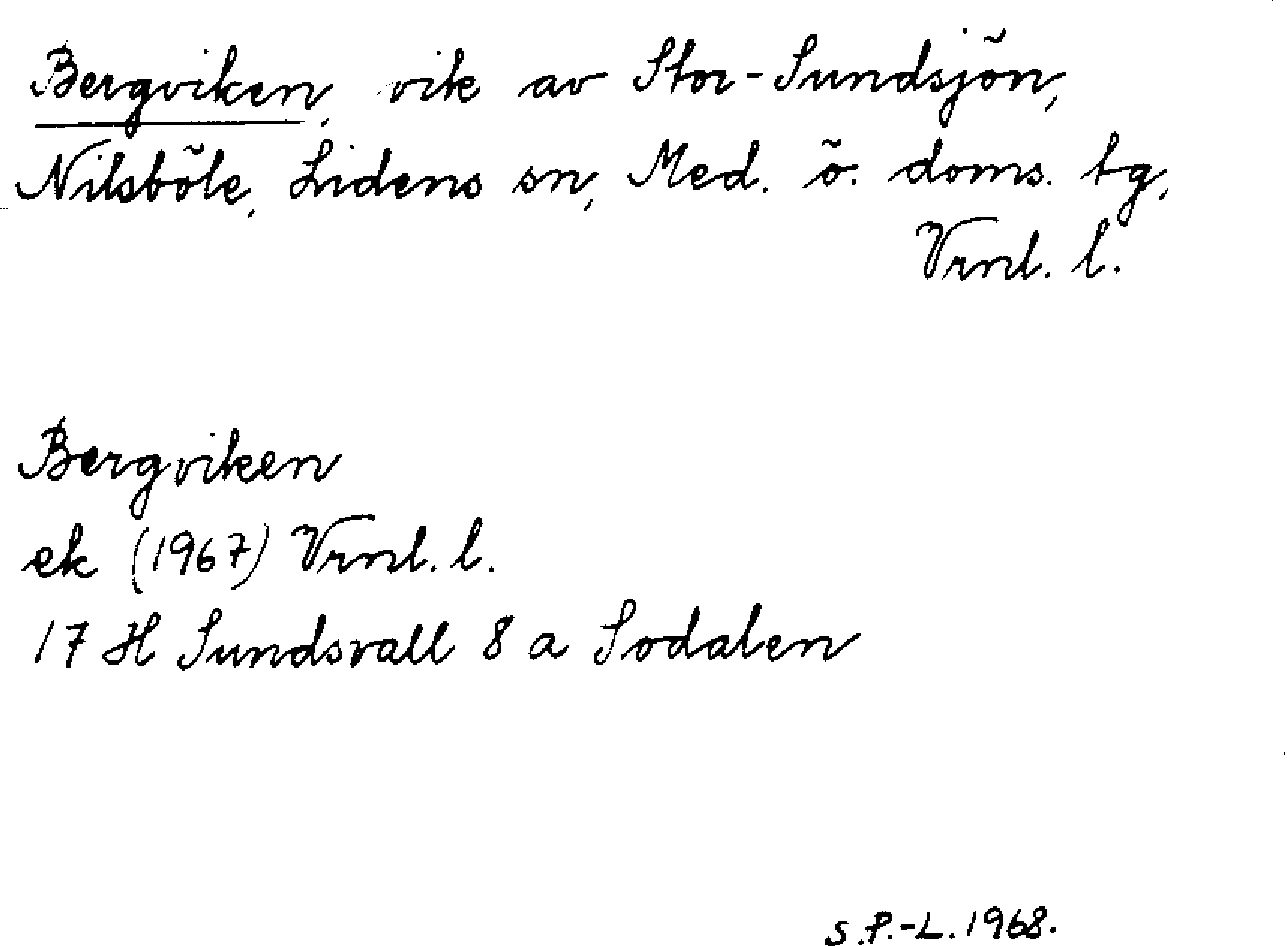 Bergviken, vik av Stor-Sundsjön,
Nilsböle, Lidens sn, Med. ö. doms. tg,
Vrnl. l.
Bergviken
ek (1967) Vrnl. l.
17 H Sundsvall 8 a Sodalen
S.P.-L. 1968.